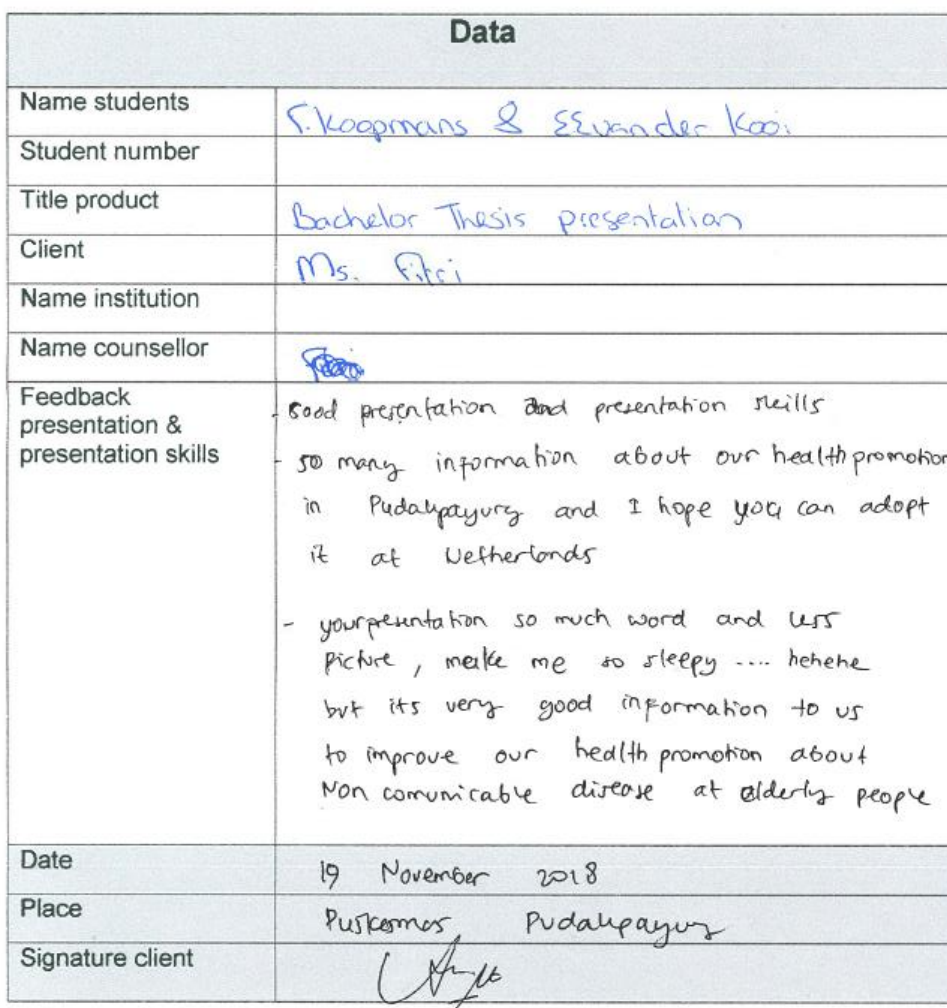 Data
Name students
S. Koopmans & EE van der Kooi
Student number
Title product
Bachelor Thesis presentation
Client
Ms. Fitri
Name institution
Name counsellor
Feedback
presentation &
presentation skills
- Good presentation and presentation skills
- so many information about our health promotion
in Pudakpayung and I hope you can adopt
it at Netherlands
- your presentation so much word and less
picture, make me so sleepy .... hehehe
but its very good information to us
to improve our health promotion about
Non comunicable disease at elderly people
Date
19 November 2018
Place
Puskesmas Pudakpayung
Signature client